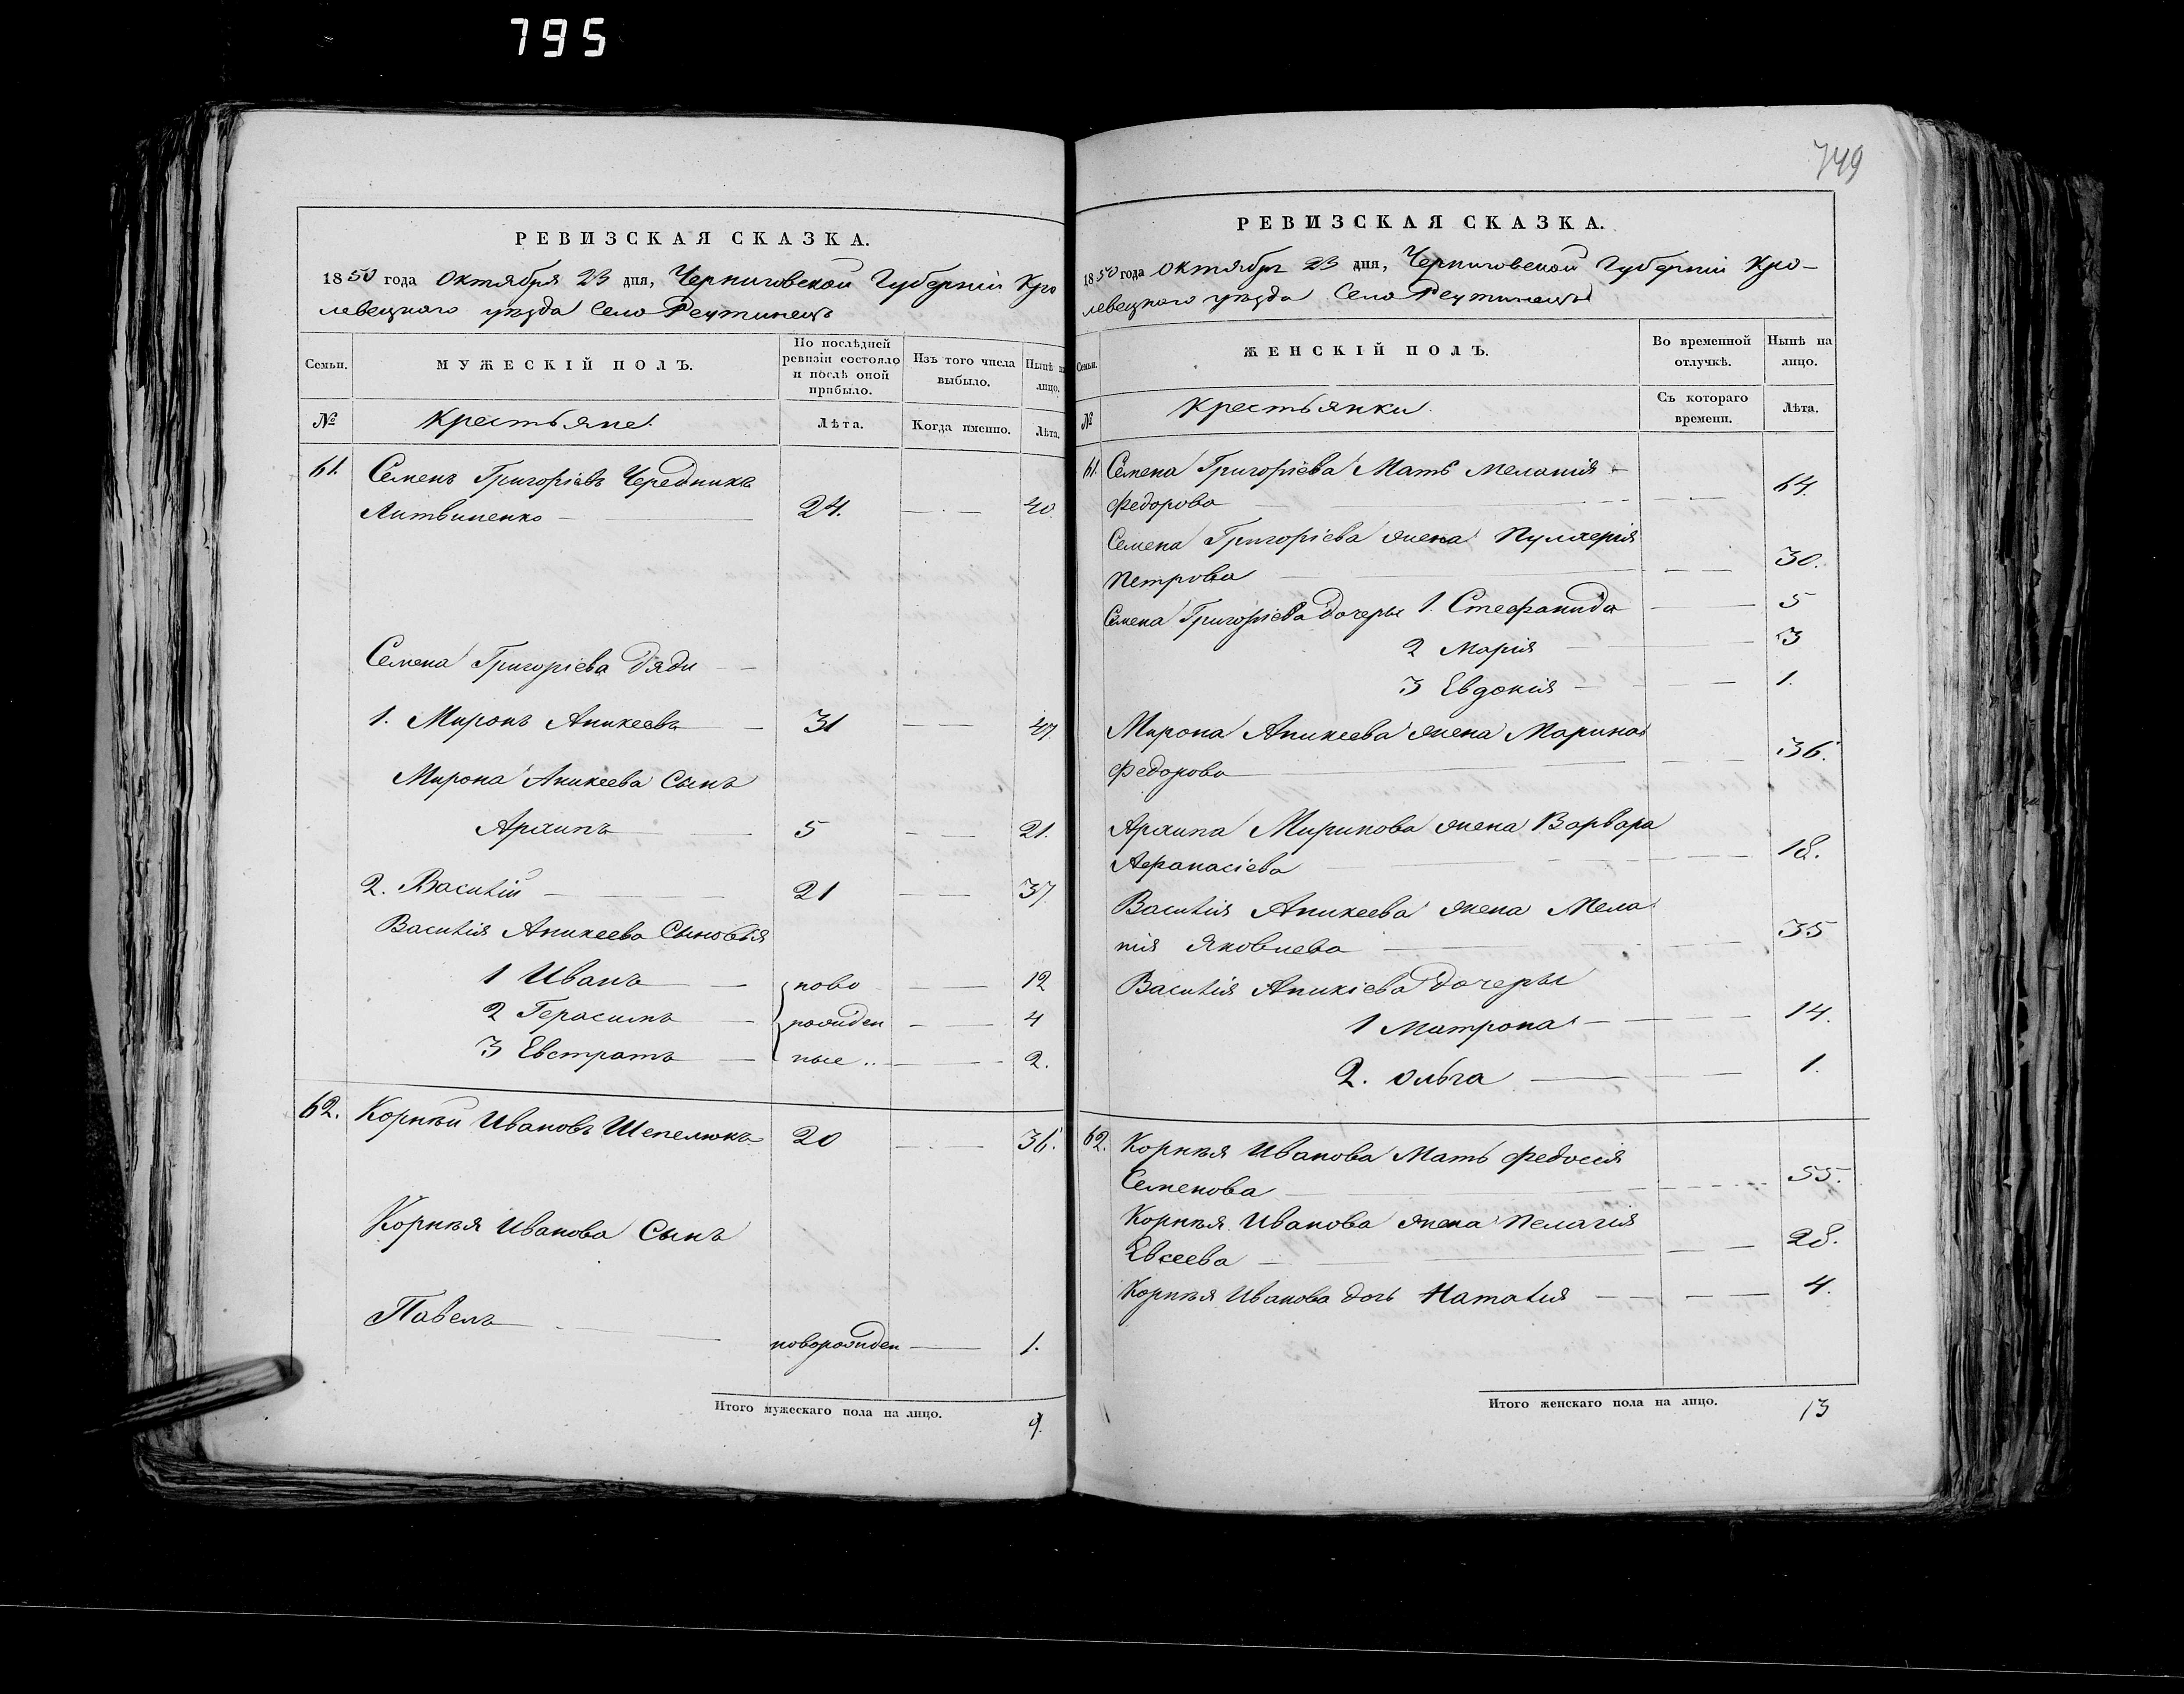 795
РЕВИЗСКАЯ СКАЗКА.
1850 года Октября 23 дня, Черниговской Губерніи Кро
левецкаго уезда Село Реутинецъ
Семьи.
МУЖЕСКІЙ ПОЛЪ.
По послѣдней ревизіи состояло и послѣ оной прибыло.
Изъ того числа выбыло.
Нынѣ на лицо.
№
Крестьяне.
Лѣта.
Когда именно.
Лѣта.
61. Семенъ Григоріевъ Чередникъ
Литвиненко 24. 40
Семена Григоріева Дяди
1. Миронъ Аникеевъ 31 47.
Мирона Аникеева Сынъ
Архипъ 5 21.
2. Василій 21 37.
Василія Аникеева Сыновья
1 Иванъ ново 12
2 Герасимъ рожден 4
3 Евстратъ ные 2.
62. Корнѣй Ивановъ Шепелюкъ 20 36.
Корнѣя Иванова Сынъ
Павелъ новорожден 1.
Итого мужескаго пола на лицо. 9.
749
РЕВИЗСКАЯ СКАЗКА.
1850 года Октября 23 дня, Черниговской Губерніи Кро-
левецкаго уезда Село Реутинецъ
Семьи.
ЖЕНСКІЙ ПОЛЪ.
Во временной отлучкѣ.
Нынѣ на лицо.
№
Крестьянки.
Съ котораго времени.
Лѣта.
61. Семена Григоріева Мать Меланія
Федорова 64.
Семена Григоріева жена Пулхерія
Петрова 30.
Семена Григоріева Дочеры 1. Стефанида 5
2 Марія 3
3 Евдокія 1.
Мирона Аникеева жена Марина
Федорова 36.
Архипа Миринова жена Варвара
Афанасіева 18.
Василія Аникеева жена Мела
нія Яковлева 35
Василія Аникіева Дочеры
1 Митрона 14.
2. Ольга 1.
62. Корнѣя Иванова Мать Федосія
Семенова 55.
Корнѣя Иванова жена Пелагія
Евсеева 28.
Корнѣя Иванова дочь Наталія 4.
Итого женскаго пола на лицо. 13